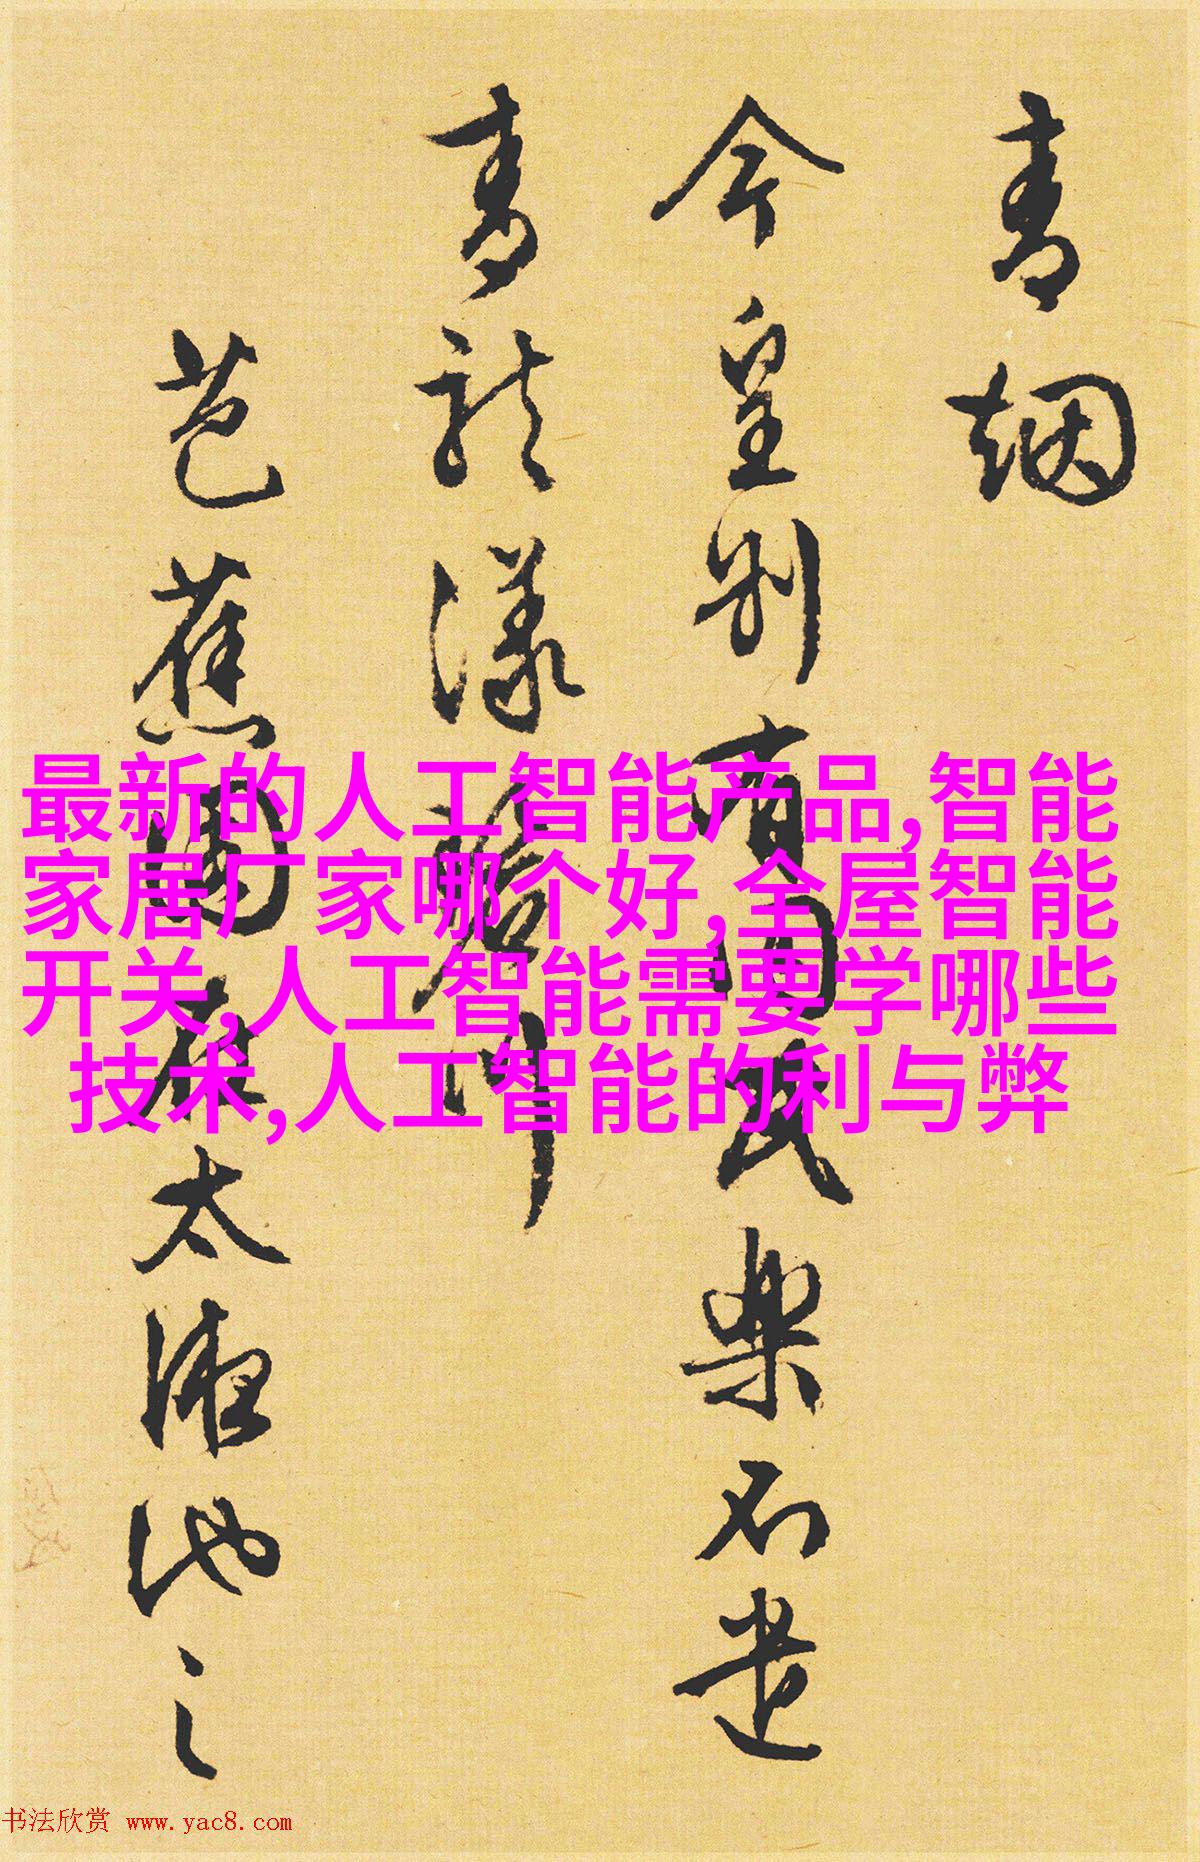 青烟
今皇别有民樂石
青漾
芭蕉園在太液池之
最新的人工智能产品,智能
家居厂家哪个好,全屋智能
开关,人工智能需要学哪些
技术,人工智能的利与弊
书法欣赏 www.yac8.com